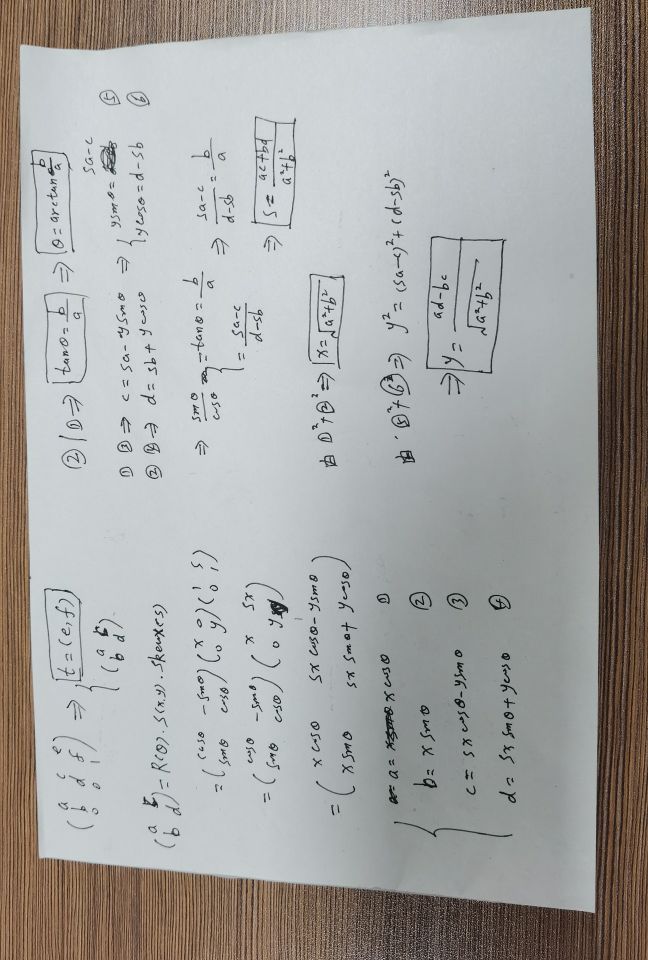 ( a c e
b d f
0 0 1 ) ⇒ { t = (e, f)
( a c
b d ).
( a c
b d ) = R(θ) · S(x,y) · skewx(s)
= ( cosθ -sinθ
sinθ cosθ ) ( x 0
0 y ) ( 1 s
0 1 )
= ( cosθ -sinθ
sinθ cosθ ) ( x sx
0 y )
= ( x cosθ sx cosθ - y sinθ
x sinθ sx sinθ + y cosθ )
a = x cosθ ①
b = x sinθ ②
c = sx cosθ - y sinθ ③
d = sx sinθ + y cosθ ④
② / ① ⇒ tanθ = b/a ⇒ θ = arctan b/a
① ③ ⇒ c = sa - y sinθ ⇒ { y sinθ = sa-c ⑤
② ④ ⇒ d = sb + y cosθ y cosθ = d-sb ⑥
⇒ sinθ/cosθ { = tanθ = b/a
= (sa-c)/(d-sb)
⇒ (sa-c)/(d-sb) = b/a
⇒ s = (ac+bd)/(a²+b²)
由 ①²+②² ⇒ x = √(a²+b²)
由 ⑤²+⑥² ⇒ y² = (sa-c)²+(d-sb)²
⇒ y = (ad-bc)/√(a²+b²)